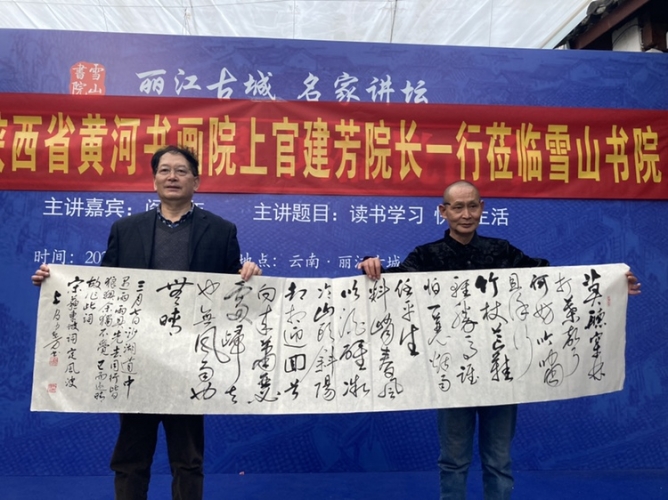 雪山書院
丽江古城 名家讲坛
陕西省黄河书画院上官建芳院长一行莅临雪山书院
主讲嘉宾:
主讲题目:读书学习 生活
时间:202
地点:云南·丽江古城
莫聽穿林
打葉声
何妨吟嘯
且徐行
竹杖芒鞋
輕勝馬誰
怕一蓑烟雨
任平生
料峭春風
吹酒醒微
冷山頭斜陽
却相迎回首
向來蕭瑟
處歸去
也無風雨也
無晴
三月七日沙湖道中
遇雨雨具先去同行皆
狼狽余獨不覺已而遂晴
故作此詞
宋蘇東坡詞定風波